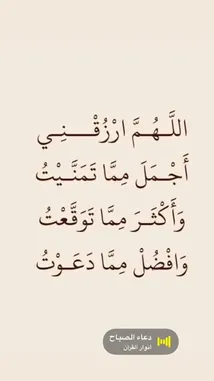 اللَّـهُـمَّ ارْزُقْـنِـي
أَجْـمَلَ مِمَّا تَمَنَّـيْتُ
وَأَكْثَـرَ مِمَّا تَوَقَّعْتُ
وَافْضُلْ مِمَّا دَعَـوْتُ
دعاء الصباح
أنوار القرآن